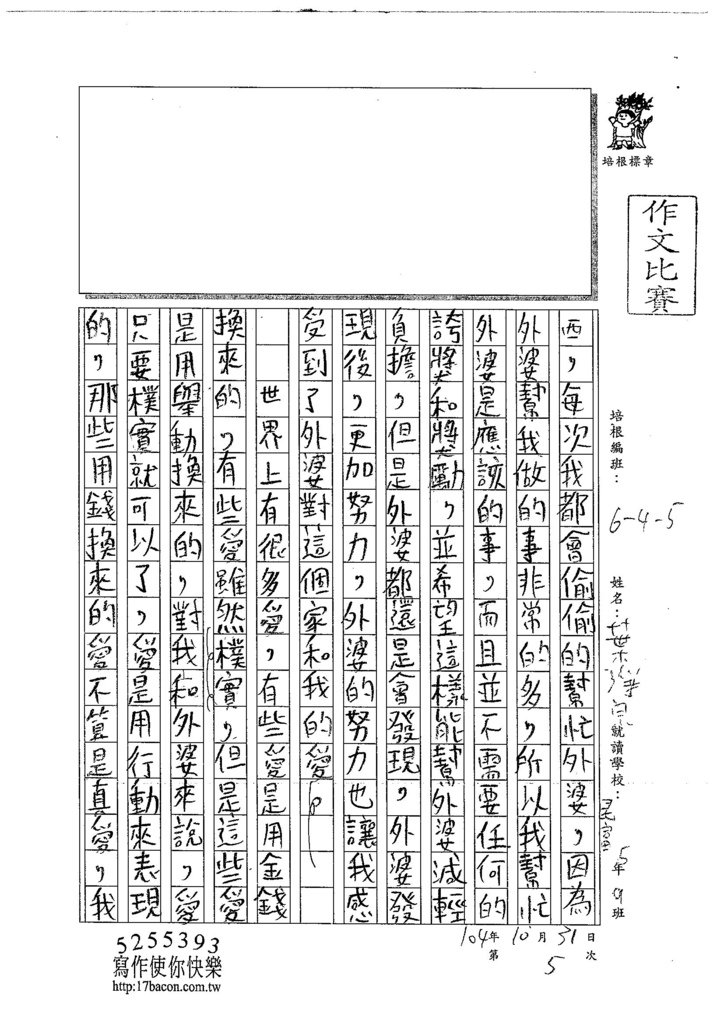 培根標章
作文比賽
培根編班：6-4-5
姓名：葉
就讀學校：
5年
班
西，每次我都會偷偷的幫忙外婆，因為
外婆幫我做的事非常的多，所以我幫忙
外婆是應該的事，而且並不需要任何的
誇獎和獎勵，並希望這樣能幫外婆減輕
負擔，但是外婆都還是會發現，外婆發
現後，更加努力，外婆的努力也讓我感
受到了外婆對這個家和我的愛。
世界上有很多愛，有些愛是用金錢
換來的，有些愛雖然樸實，但是這些愛
是用舉動換來的，對我和外婆來說，愛
只要樸實就可以了，愛是用行動來表現
的，那些用錢換來的愛不算是真愛，我
104年10月31日
第5次
5255393
寫作使你快樂
http:17bacon.com.tw